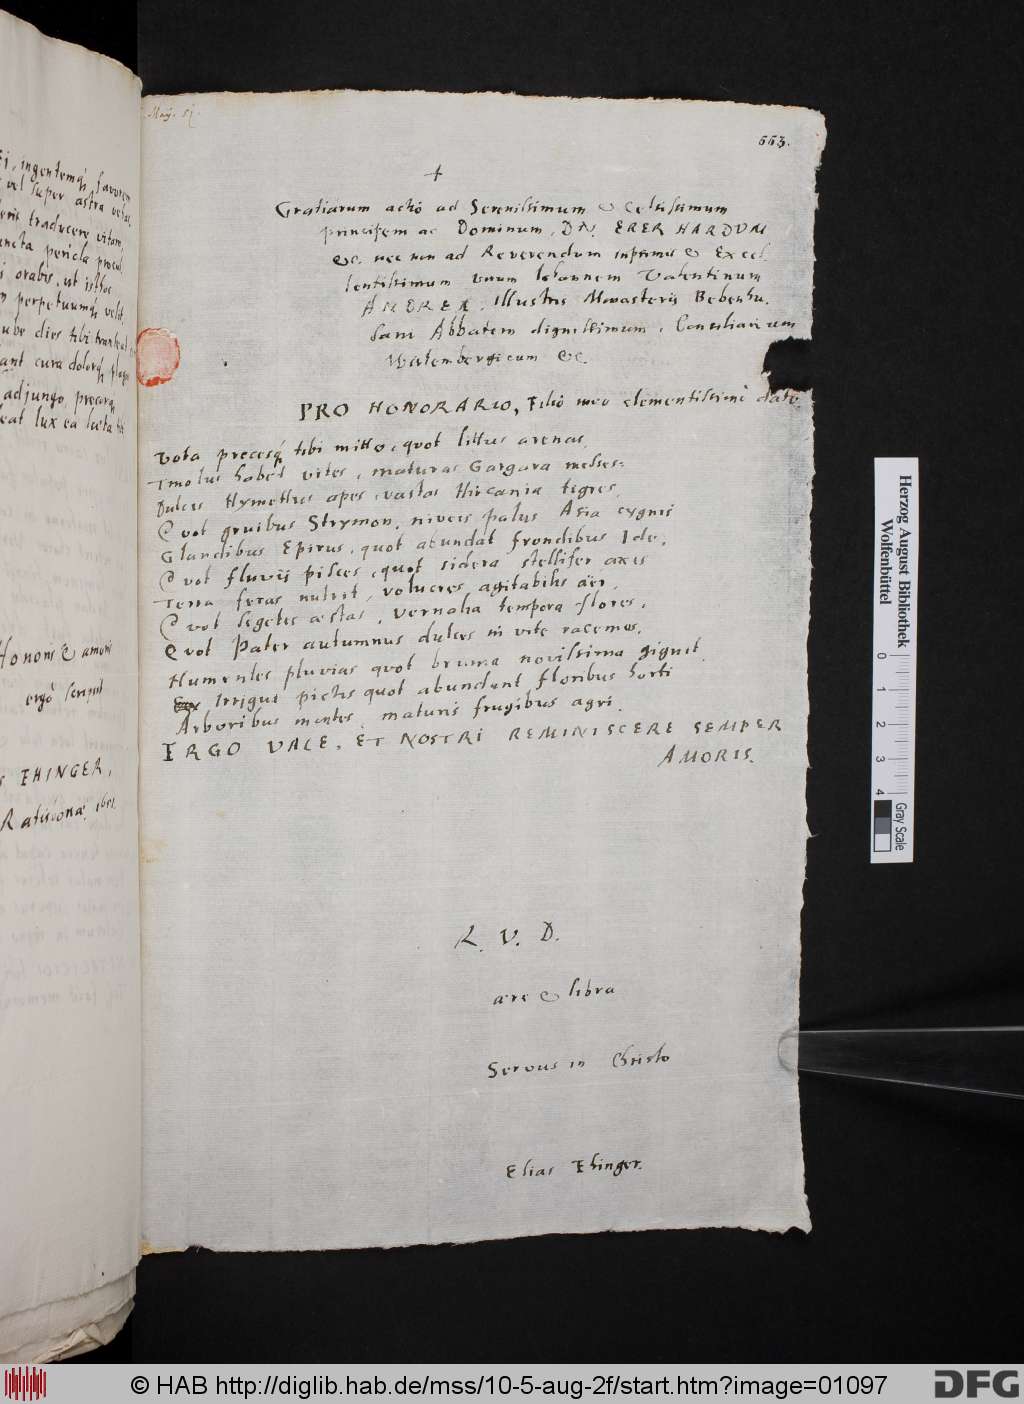 i, ingentemq; favorem
vel super astra vehas,
traducere vitam,
ncta pericla procul
i orabis, ut isthoc
perpetuumq; velit
ube dies tibi transeat
ant cura dolorq; plagas
adjungo, precorq;
eat lux ea laeta tibi
Honoris & amoris
ergò scripsit
s EHINGER,
Ratisbonae, 1651
Maij. 51.
663.
+
Gratiarum actio ad Serenissimum & Celsissimum
Principem ac Dominum, DN. EBERHARDUM
&c. nec non ad Reverendum inprimis & Excel
lentissimum virum Iohannem Valentinum
ANDREÆ, Illustris Monasterij Bebenhu.
sani Abbatem dignissimum, Consiliarium
Wirtembergicum &c.
PRO HONORARIO, Filio meo clementissimè dato.
Vota precesq; tibi mitto, quot littus arenas,
Tmolus habet vites, maturas Gargara messes:
Dulcis Hymettus apes, vastas Hircania tigres,
Quot gruibus Strymon, niveis palus Asia cygnis
Glandibus Epirus, quot abundat frondibus Ide,
Quot fluvij pisces, quot sidera stellifer axis
Terra feras nutrit, volucres agitabilis aër,
Quot segetes æstas, vernalia tempora flores,
Quot Pater autumnus dulces in vite racemos,
Humentes pluvias quot bruma novissima gignit,
Irrigui pictis quot abundent floribus horti
Arboribus montes, maturis frugibus agri.
ERGO VALE, ET NOSTRI REMINISCERE SEMPER
AMORIS.
R. V. D.
ære & libra
Servus in Christo
Elias Ehinger.
Herzog August Bibliothek
Wolfenbüttel
0 1 2 3 4
Gray Scale
© HAB http://diglib.hab.de/mss/10-5-aug-2f/start.htm?image=01097
DFG